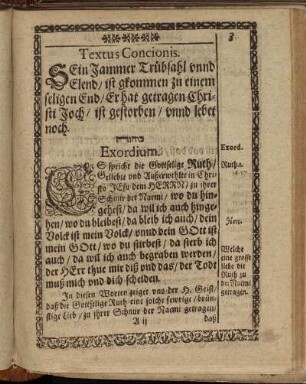 3
Textus Concionis.
SEin Jammer Trübsahl vnnd
Elend/ ist gkommen zu einem
seligen End/ Er hat getragen Chri-
sti Joch/ ist gestorben/ vnnd lebet
noch.
Exordium.
ES spricht die Gottselige Ruth/
Geliebte vnd Außerwöhlte in Chri-
sto JEsu dem HERRN/ zu jhrer
Schnur der Naemi/ wo du hin-
gehest/ da wil ich auch hinge-
hen/ wo du bleibest/ da bleib ich auch/ dein
Volck ist mein Volck/ vnnd dein GOtt ist
mein GOtt/ wo du stirbest/ da sterb ich
auch/ da wil ich auch begraben werden/
der HErr thue mir diß vnd das/ der Todt
muß mich vnd dich scheiden.
In diesen Worten zeiget vns der H. Geist/
daß die Gottselige Ruth eine solche fewrige/ brün-
stige Lieb/ zu jhrer Schnur der Naemi getragen/
A ij
daß
Exord.
Ruth 1.
Welche
eine grosse
liebe die
Ruth zu
der Naemi
getragen.